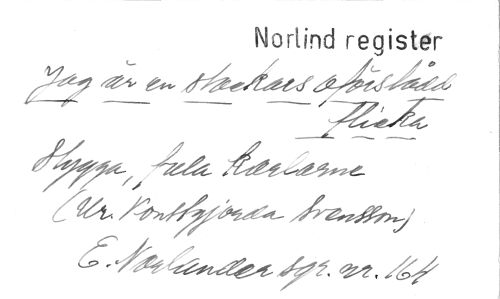 Norlind register
Jag är en stackars oförstådd
flicka
Stygga, fula karlarne
(Ur. Konstgjorda Svensson)
E. Norlander sgr. nr. 164